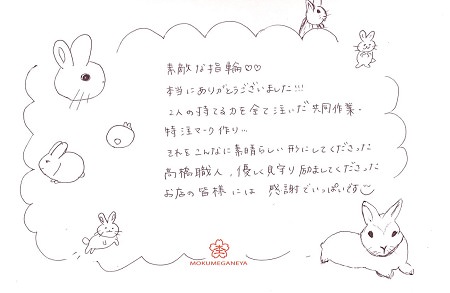 素敵な指輪♡♡
本当にありがとうございました!!!
2人の持てる力を全て注いだ共同作業・
特注マーク作り…
それをこんなに素晴らしい形にしてくださった
高橋職人、優しく見守り励ましてくださった
お店の皆様には 感謝でいっぱいです
MOKUMEGANEYA